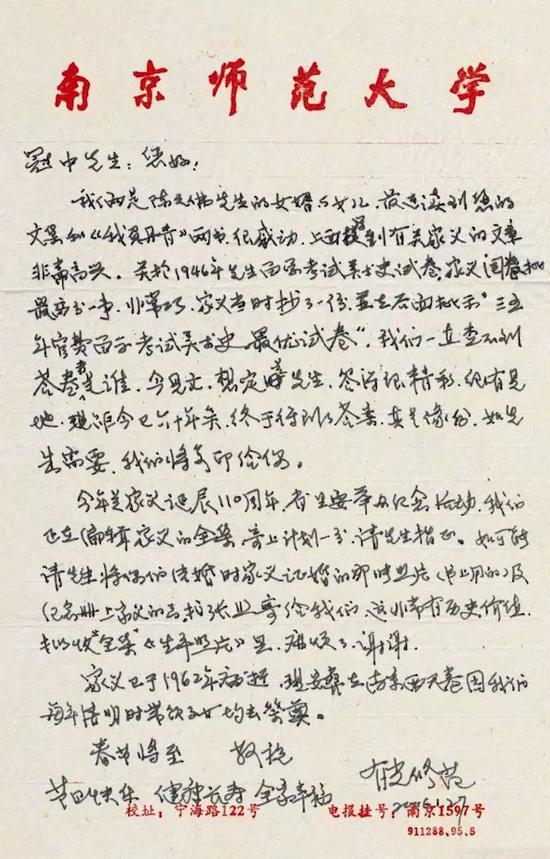 南京师范大学
冠中先生：您好！
我们俩是陈之佛先生的女婿与女儿，最近读到您的
文墨和《我负丹青》两书，很感动，上面提到有关家父的文章
非常高兴。关于1946年先生留学考试美术史试卷，家父阅卷批
最高分一事，非常巧，家父当时抄了一份，并在右面批示“三五
年官费留学考试美术史最优试卷”，我们一直查不到
答卷者是谁，今见文，想定是先生，答得很精彩，很有见
地，现距今已六十年余，终于得到了答案，真是缘份，如先
生需要，我们将复印给您。
今年是家父诞辰110周年，省里要举办纪念活动，我们
正在编辑家父的全集，寄上计划一分，请先生指正。如可能
请先生将您们结婚时家父证婚的那张照片（书上用的）及
纪念册上家父的画拍张照寄给我们，这非常有历史价值，
拟收“全集”《生平照片》里，麻烦了，谢谢。
家父已于1962年病逝，现安葬在南京西天 园我们
每年清明时 子女均去祭奠。
春节将至 敬祝
节日快乐 健康长寿 全家幸福
有光 修范
2006.1.27
校址：宁海路122号 电报挂号：南京1597号
911288.95.5